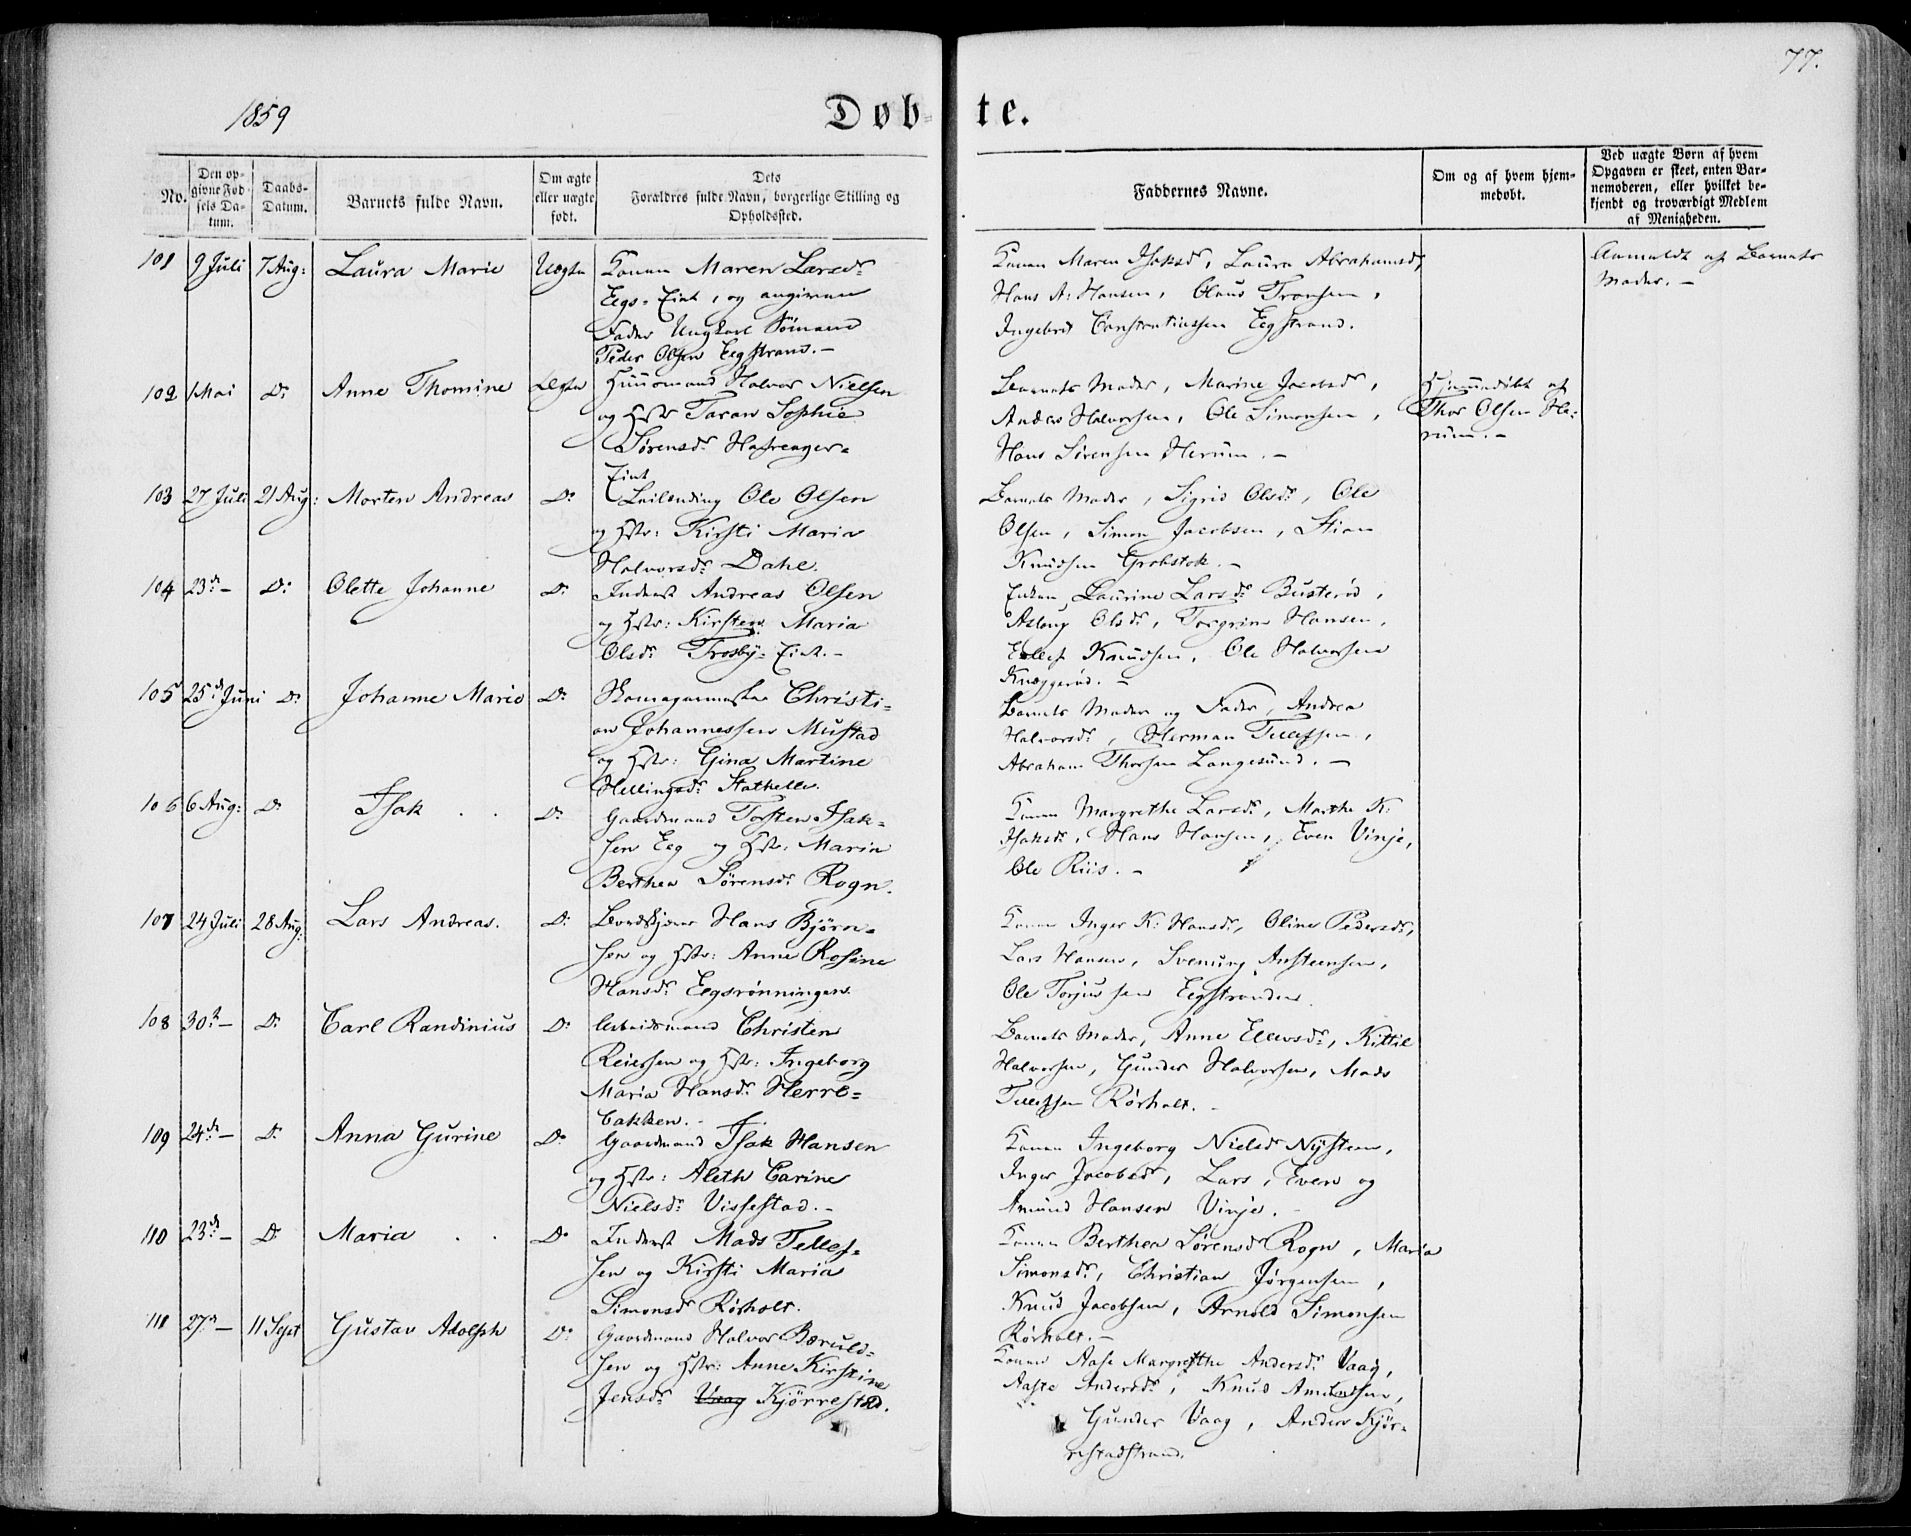 77.
1859
Døb- te.
No.
Den op-
givne Fød
sels Da-
tum.
Daabs-
Datum.
Barnets fulde Navn.
Om ægte
eller uægte
født.
Dets
Forældres fulde Navn, borgerlige Stilling og
Opholdssted.
Faddernes Navne.
Om og af hvem hjem-
medøbt.
Ved uægte Børn af hvem
Opgaven er skeet, enten Bar-
nemoderen, eller hvilket be-
kjendt og troværdigt Medlem
af Menigheden.
101 9 Juli 7 Aug: Laura Marie Uægte Konen Maren Larsdr
Eegs-Eiet, og angiven
Fader Ungkarl Sömand
Peder Olsen Eegstrand.-
Konen Maren Isaksd, Laura Abrahamsd,
Hans A: Hansen, Claus Fransen,
Ingebret Constantiussen Eegstrand.
Anmeldt af Barnets
Moder.-
102 1 Mai Do Anne Thomine Ægte Huusmand Halvor Nielsen
og Hstr Taran Sophie
Sørensdr Hafsager-
Eiet
Barnets Moder, Marine Jacobsdr,
Anders Halvorsen, Ole Simonsen,
Hans Sørensen Herum.-
Hjemmedöbt af
Thor Olsen He-
rum.-
103 27 Juli 21 Aug: Morten Andreas Do Leilending Ole Olsen
og Hstr: Kirsti Maria
Halvorsdr Dahl.
Barnets Moder, Sigrid Olsdr, Ole
Olsen, Simon Jacobsen, Stian
Knudsen Grobstok.-
104 23d - Do Olette Johanne Do Inderst Andreas Olsen
og Hstr: Kirsten Maria
Olsdr Trosby-Eiet.-
Enken Laurine Larsdr Busterød,
Aslaug Olsdr, Torgrim Hansen,
Ellef Knudsen, Ole Halvorsen
Knæggerød.-
105 25d Juni Do Johanne Marie Do Skomagermester Christi-
an Johannessen Mustad
og Hstr: Gina Martine
Hellingsdr Stathelle.
Barnets Moder og Fader, Andrea
Halvorsdr, Herman Tellefsen,
Abraham Thorsen Langesund.-
106 6 Aug: Do Isak Do Gaardmand Torsten Isak-
sen Eeg og Hstr: Maria
Berthea Sørensdr Rogn.
Konen Margrethe Larsdr, Marthe K:
Isaksdr, Hans Hansen, Even Vinje,
Ole Riis.-
107 24 Juli 28 Aug: Lars Andreas. Do Bordskjærer Hans Bjørn-
sen og Hstr: Anne Rosine
Hansdr Eegsrønningen.
Konen Inger K: Hansdr, Oline Pedersdr,
Lars Hansen, Svenung Ansteensen,
Ole Torjussen Eegstranden.
108 30d - Do Carl Randinius Do Arbeidsmand Christen
Reiersen og Hstr: Ingeborg
Maria Hansdr Herre-
bakken.-
Barnets Moder, Anne Ellevsdr, Kittil
Halvorsen, Gunder Halvorsen, Mads
Tellefsen Rørholt.-
109 24d - Do Anna Gurine Do Gaardmand Isak Hansen
og Hstr: Aleth Carine
Nielsdr Vissestad.-
Konen Ingeborg Nielsd Nysteen,
Inger Jacobsdr, Lars, Even og
Amund Hansen Vinje.
110 23d - Do Maria Do Inderst Mads Tellef-
sen og Kirsti Maria
Simonsdr Rörholt.
Konen Berthea Sørensdr Rogn, Maria
Simonsdr, Christian Jørgensen,
Knud Jacobsen, Arnold Simonsen
Rörholt.-
111 27d - 11 Sept Gustav Adolph Do Gaardmand Halvor Bæruld-
sen og Hstr: Anne Kirstine
Jensdr Vaag Kjørrestad.
Konen Aase Margrethe Andersdr Vaag,
Aaste Andersdr, Knud Amundsen,
Gunder Vaag, Anders Kjør-
restadstrand.